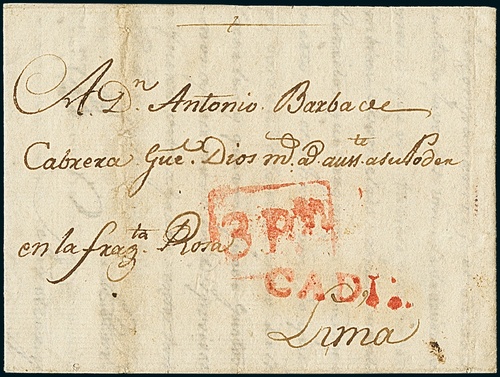 A D.n Antonio Barba de
Cabrera Gue. Dios m.s a.s auss.te a su Poder
en la frag.ta Rosa
3 Pm
CADI
Lima